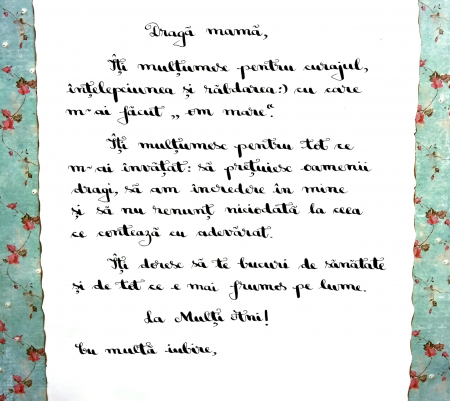 Dragă mamă,
Îți mulțumesc pentru curajul,
înțelepciunea și răbdarea:) cu care
m-ai făcut „om mare”.
Îți mulțumesc pentru tot ce
m-ai învățat: să prețuiesc oamenii
dragi, să am încredere în mine
și să nu renunț niciodată la ceea
ce contează cu adevărat.
Îți doresc să te bucuri de sănătate
și de tot ce e mai frumos pe lume.
La Mulți Ani!
Cu multă iubire,